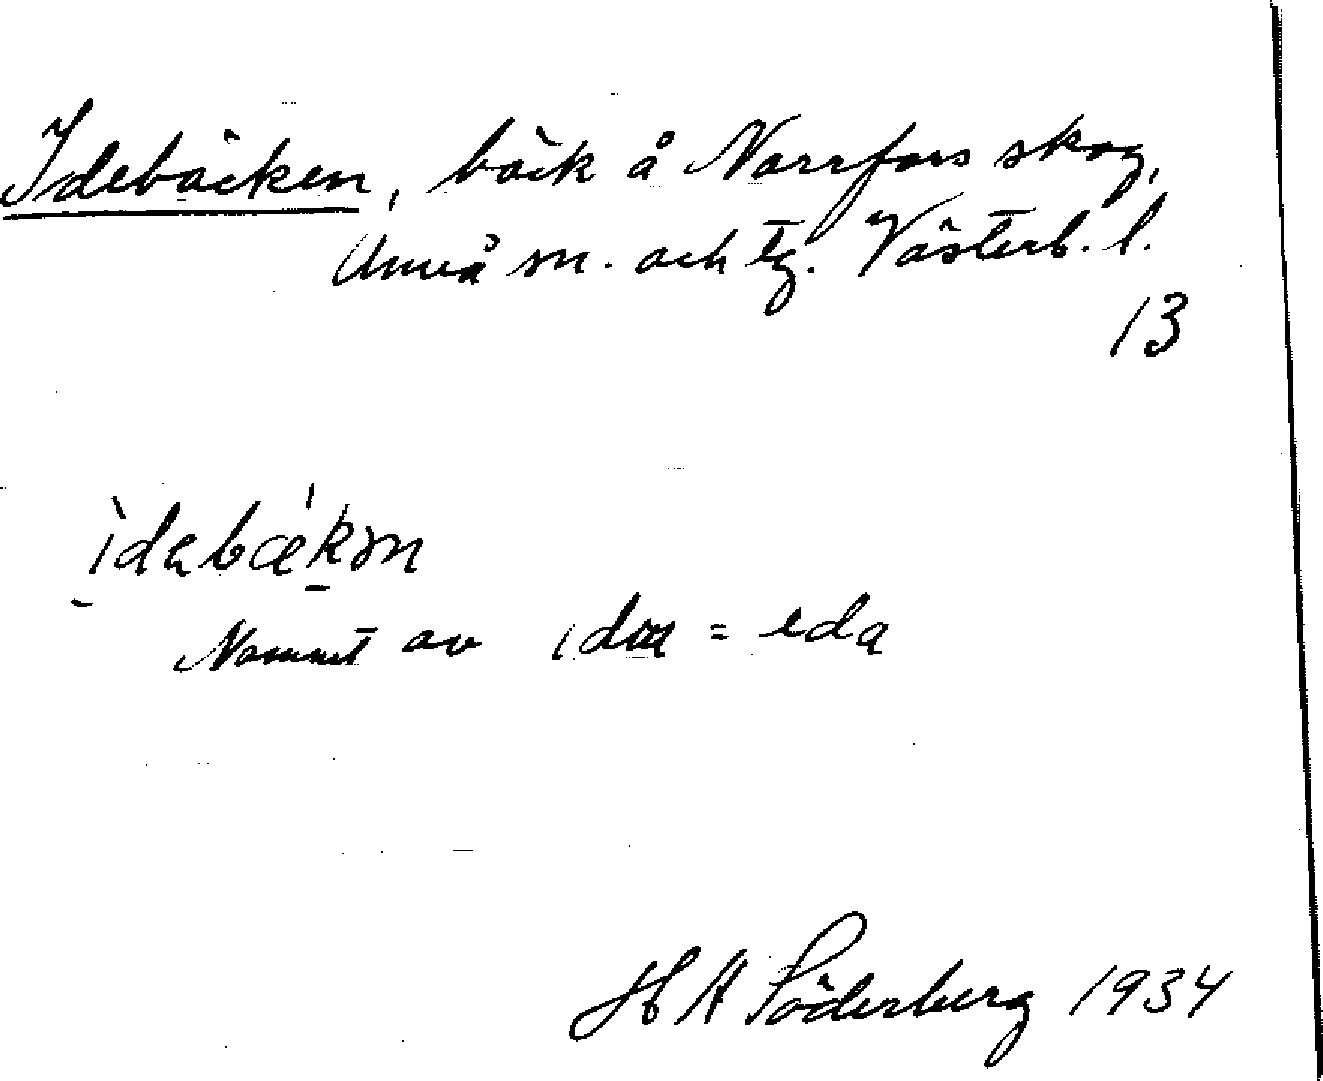 Idebäcken, bäck å Norrfors skog,
Umeå sn. och tg. Västerb. l.
13
ìdabǽkən
Namnet av = eda
H A Söderberg 1934